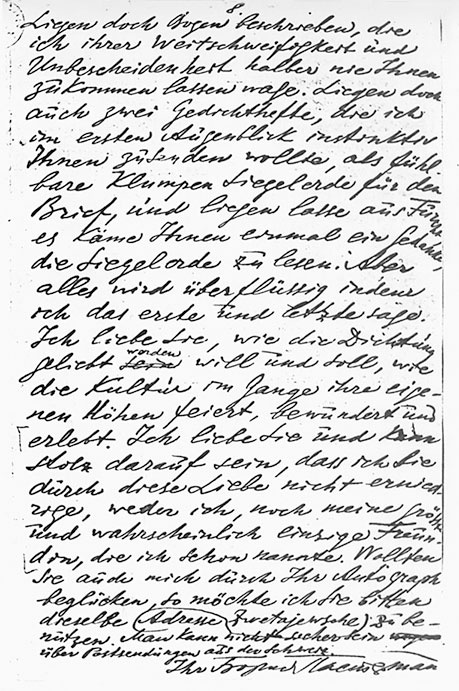 8
Liegen doch Bogen beschrieben, die
ich ihrer Weitschweifigkeit und
Unbescheidenheit halber nie Ihnen
zukommen lassen wage. Liegen doch
auch zwei Gedichthefte, die ich
im ersten Augenblick instinktiv
Ihnen zusenden wollte, als fühl-
bare Klumpen Siegelerde für den
Brief, und liegen lasse aus Furcht
es käme Ihnen einmal ein Gedanke,
die Siegelerde zu lesen. Aber
alles wird überflüssig indem
ich das erste und letzte sage.
Ich liebe Sie, wie die Dichtung
geliebt worden will und soll, wie
die Kultur im Gange ihre eige-
nen Höhen feiert, bewundert und
erlebt. Ich liebe Sie und kann
stolz darauf sein, dass ich Sie
durch diese Liebe nicht ernied-
rige, weder ich, noch meine größte
und wahrscheinlich einzige Freun-
din, die ich schon nannte. Wollten
Sie auch mich durch Ihr Autograph
beglücken, so möchte ich Sie bitten
dieselbe Adresse (Zwetajewsche) zu be-
nutzen. Man kann nicht sicher sein
über Postsendungen aus der Schweiz.
Ihr